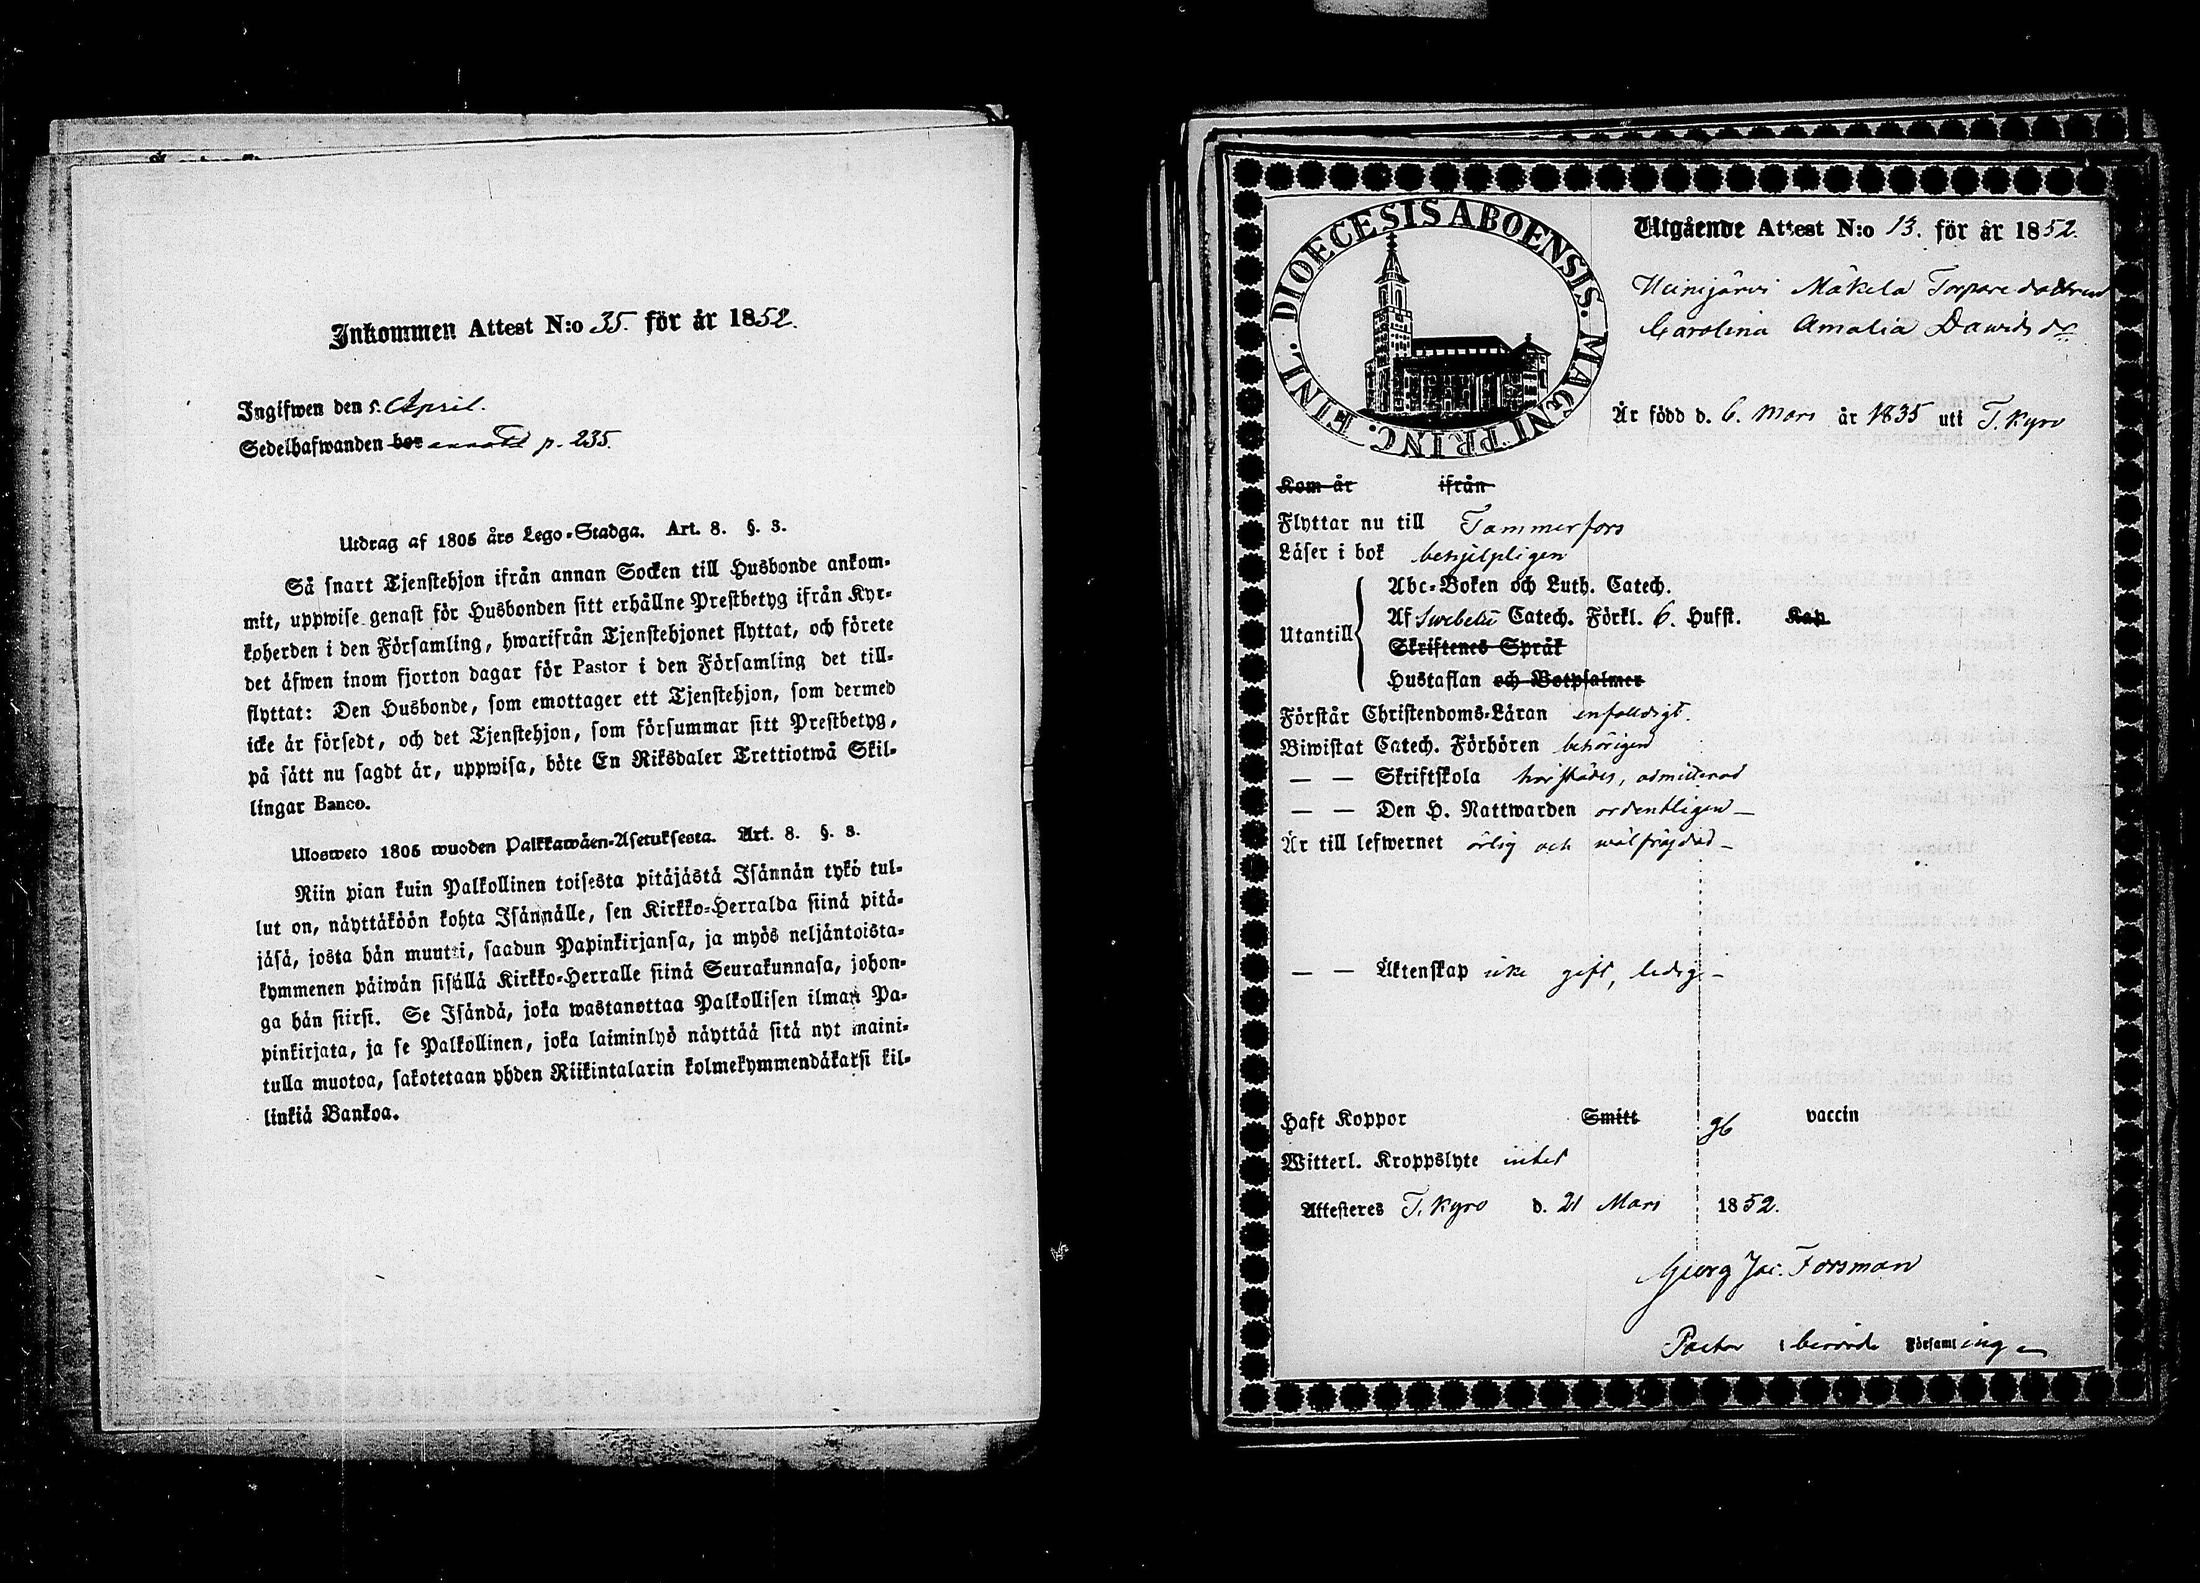 Inkommen Attest N:o 35. för år 1852.
Ingifwen den 5. April.
Sedelhafwanden bor annot p. 235.
Utdrag af 1805 års Lego-Stadga. Art. 8. §. 3.
Så snart Tjenstehjon ifrån annan Socken till Husbonde ankom-
mit, uppwise genast för Husbonden sitt erhållne Prestbetyg ifrån Kyr-
koherden i den Församling, hwarifrån Tjenstehjonet flyttat, och förete
det äfwen inom fjorton dagar för Pastor i den Församling det till-
flyttat: Den Husbonde, som emottager ett Tjenstehjon, som dermed
icke är försedt, och det Tjenstehjon, som försummar sitt Prestbetyg,
på sätt nu sagdt är, uppwisa, böte En Riksdaler Trettiotwå Skil-
lingar Banco.
Ulosweto 1805 wuoden Palkkawäen-Asetuksesta. Art. 8. §. 3.
Niin pian kuin Palkollinen toisesta pitäjästä Isännän tykö tul-
lut on, näyttäköön kohta Isännälle, sen Kirkko-Herralda siinä pitä-
jäsä, josta hän muutti, saadun Papinkirjansa, ja myös neljäntoista-
kymmenen päiwän sisällä Kirkko-Herralle siinä Seurakunnasa, johon-
ga hän siirsi. Se Isändä, joka wastanottaa Palkollisen ilman Pa-
pinkirjata, ja se Palkollinen, joka laiminlyö näyttää sitä nyt maini-
tulla muotoa, sakotetaan yhden Riikintalarin kolmekymmendäkaksi kil-
linkiä Bankoa.
DIOECESIS ABOENSIS. MAGNI PRINC. FINL.
Utgående Attest N:o 13. för år 1852.
Heinijärvi Mäkelä Torpare dottren
Carolina Amalia Dawidsdr
Är född d. 6. Mars år 1835 uti T. Kyro
Kom år ifrån
Flyttar nu till Tammerfors
Läser i bok behjelpligen
Utantill
Abc-Boken och Luth. Catech.
Af Swebelii Catech. Förkl. 6. Hufst. Kap.
Skriftenes Språk
Hustaflan och Botpsalmer
Förstår Christendoms-Läran enfaldigt.
Biwistat Catech. Förhören behörigen
— — Skriftskola härstädes, admitterad
— — Den H. Nattwarden ordentligen —
Är till lefwernet ärlig och wälfrejdad —
— — Äktenskap icke gift, ledig —
Haft Koppor Smitt gb vaccin
Witterl. Kroppslyte intet
Attesteres T. Kyro d. 21 Mars 1852.
Georg Jac. Forsman
Pastor i berörde Församlingen